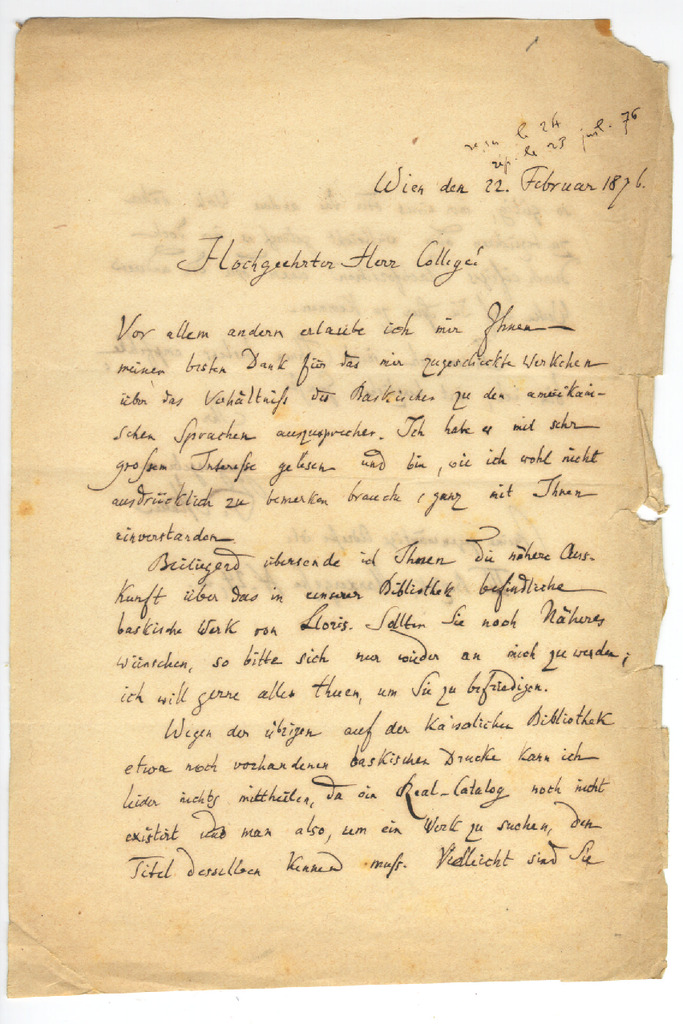 le 24
rép. le 23 juil. 76
Wien den 22. Februar 1876.
Hochgeehrter Herr College!
Vor allem andern erlaube ich mir Ihnen
meinen besten Dank für das mir zugeschickte Werkchen
über das Verhältniß des Baskischen zu den amerikani-
schen Sprachen auszusprechen. Ich habe es mit sehr
großem Interesse gelesen und bin, wie ich wohl nicht
ausdrücklich zu bemerken brauche, ganz mit Ihnen
einverstanden.
Beiliegend übersende ich Ihnen die nähere Aus-
kunft über das in unserer Bibliothek befindliche
baskische Werk von Lloris. Sollten Sie noch Näheres
wünschen, so bitte sich nur wieder an mich zu wenden;
ich will gerne alles thuen, um Sie zu befriedigen.
Wegen der übrigen auf der Kaiserlichen Bibliothek
etwa noch vorhandenen baskischen Drucke kann ich
leider nichts mittheilen, da ein Real-Catalog noch nicht
existirt und man also, um ein Werk zu suchen, den
Titel desselben kennen muß. Vielleicht sind Sie